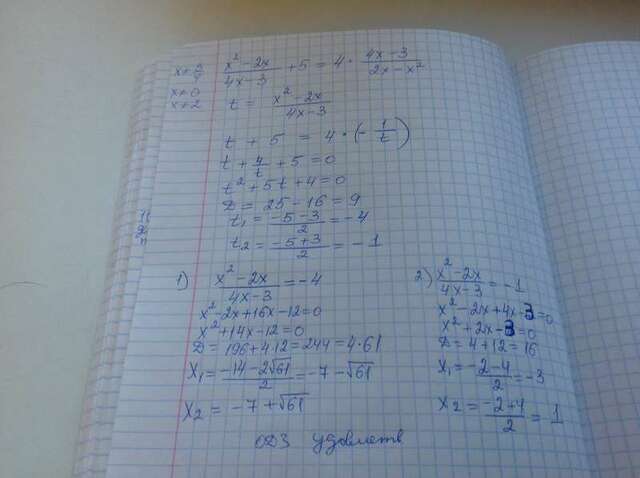 x ≠ 3/4 (x² − 2x)/(4x − 3) + 5 = 4 · (4x − 3)/(2x − x²)
x ≠ 0
x ≠ 2 t = (x² − 2x)/(4x − 3)
t + 5 = 4 · (−1/t)
t + 4/t + 5 = 0
t² + 5t + 4 = 0
D = 25 − 16 = 9
t₁ = (−5 − 3)/2 = −4
t₂ = (−5 + 3)/2 = −1
1) (x² − 2x)/(4x − 3) = −4
x² − 2x + 16x − 12 = 0
x² + 14x − 12 = 0
D = 196 + 4·12 = 244 = 4·61
x₁ = (−14 − 2√61)/2 = −7 − √61
x₂ = −7 + √61
2) (x² − 2x)/(4x − 3) = −1
x² − 2x + 4x − 3 = 0
x² + 2x − 3 = 0
D = 4 + 12 = 16
x₁ = (−2 − 4)/2 = −3
x₂ = (−2 + 4)/2 = 1
ОДЗ удовлетв